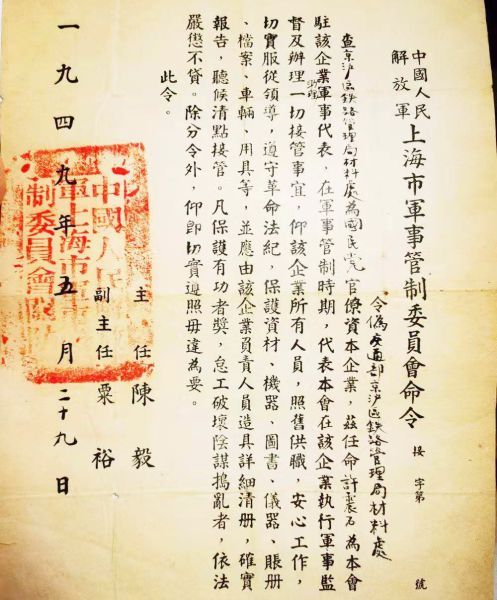 中國人民
解放軍
上海市軍事管制委員會命令
接 字第 號
令偽交通部京沪区鉄路管理局材料處
查京沪区鉄路管理局材料處為國民党官僚資本企業,茲任命許為本會
駐該企業軍事代表,在軍事管制時期,代表本會在該企業執行軍事監
督及辦理一切接管事宜,仰該企業所有人員,照舊供職,安心工作,
切實服從領導,遵守革命法紀,保護資材、機器、圖書、儀器、賬册
、檔案、車輛、用具等,並應由該企業員責人員造具詳細清册,確實
報告,聽候清點接管。凡保護有功者獎,怠工破壞陰謀搗亂者,依法
嚴懲不貸。除分令外,仰即切實遵照毋違為要。
此令。
主任陳毅
副主任粟裕
一九四九年五月二十九日
中國人民
軍上海市軍
制委員會